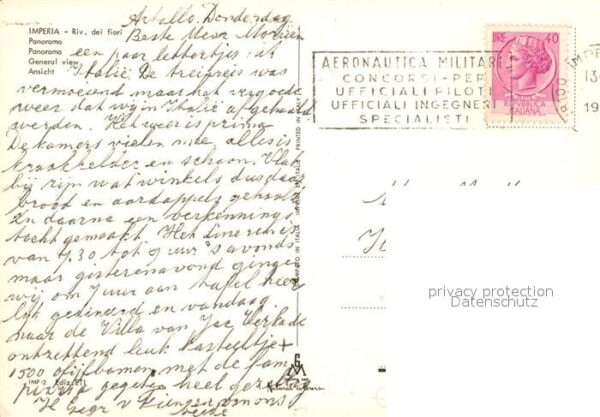 IMPERIA - Riv. dei fiori
Panorama
Panorama
General view
Ansicht
Artallo. Donderdag
Beste Meer
een paar lettertjes uit
Italië. De treinreis was
vermoeiend maar het erg goede
weer dat wij in Italië afgehaald
werden. Het weer is prima
De kamers vielen mee, alles is
kraakhelder en schoon. Vlak
bij zijn wat winkels dus daar
brood en aardappels gehaald
En daarna een verkennings
tocht gemaakt. Het diner is
van 7.30 tot 9 uur 's avonds
maar gisterenavond gingen
wij, om 7 uur aan tafel heer
lijk gedineerd en vandaag
naar de Villa van Jac
ontzettend leuk kasteeltje +
1500 olijfbomen met de fam
pizza gegeten heel gezellig
H gegr v ons
IMP 12 Ediz.
STAMPATO IN ITALIA - IMPRIMÉ EN ITALIE - PRINTED IN ITALY
AERONAUTICA MILITARE
CONCORSI - PER
UFFICIALI PILOTI
UFFICIALI INGEGNERI
SPECIALISTI
LIRE 40
REPVBBLICA
ITALIANA
13
19
privacy protection
Datenschutz